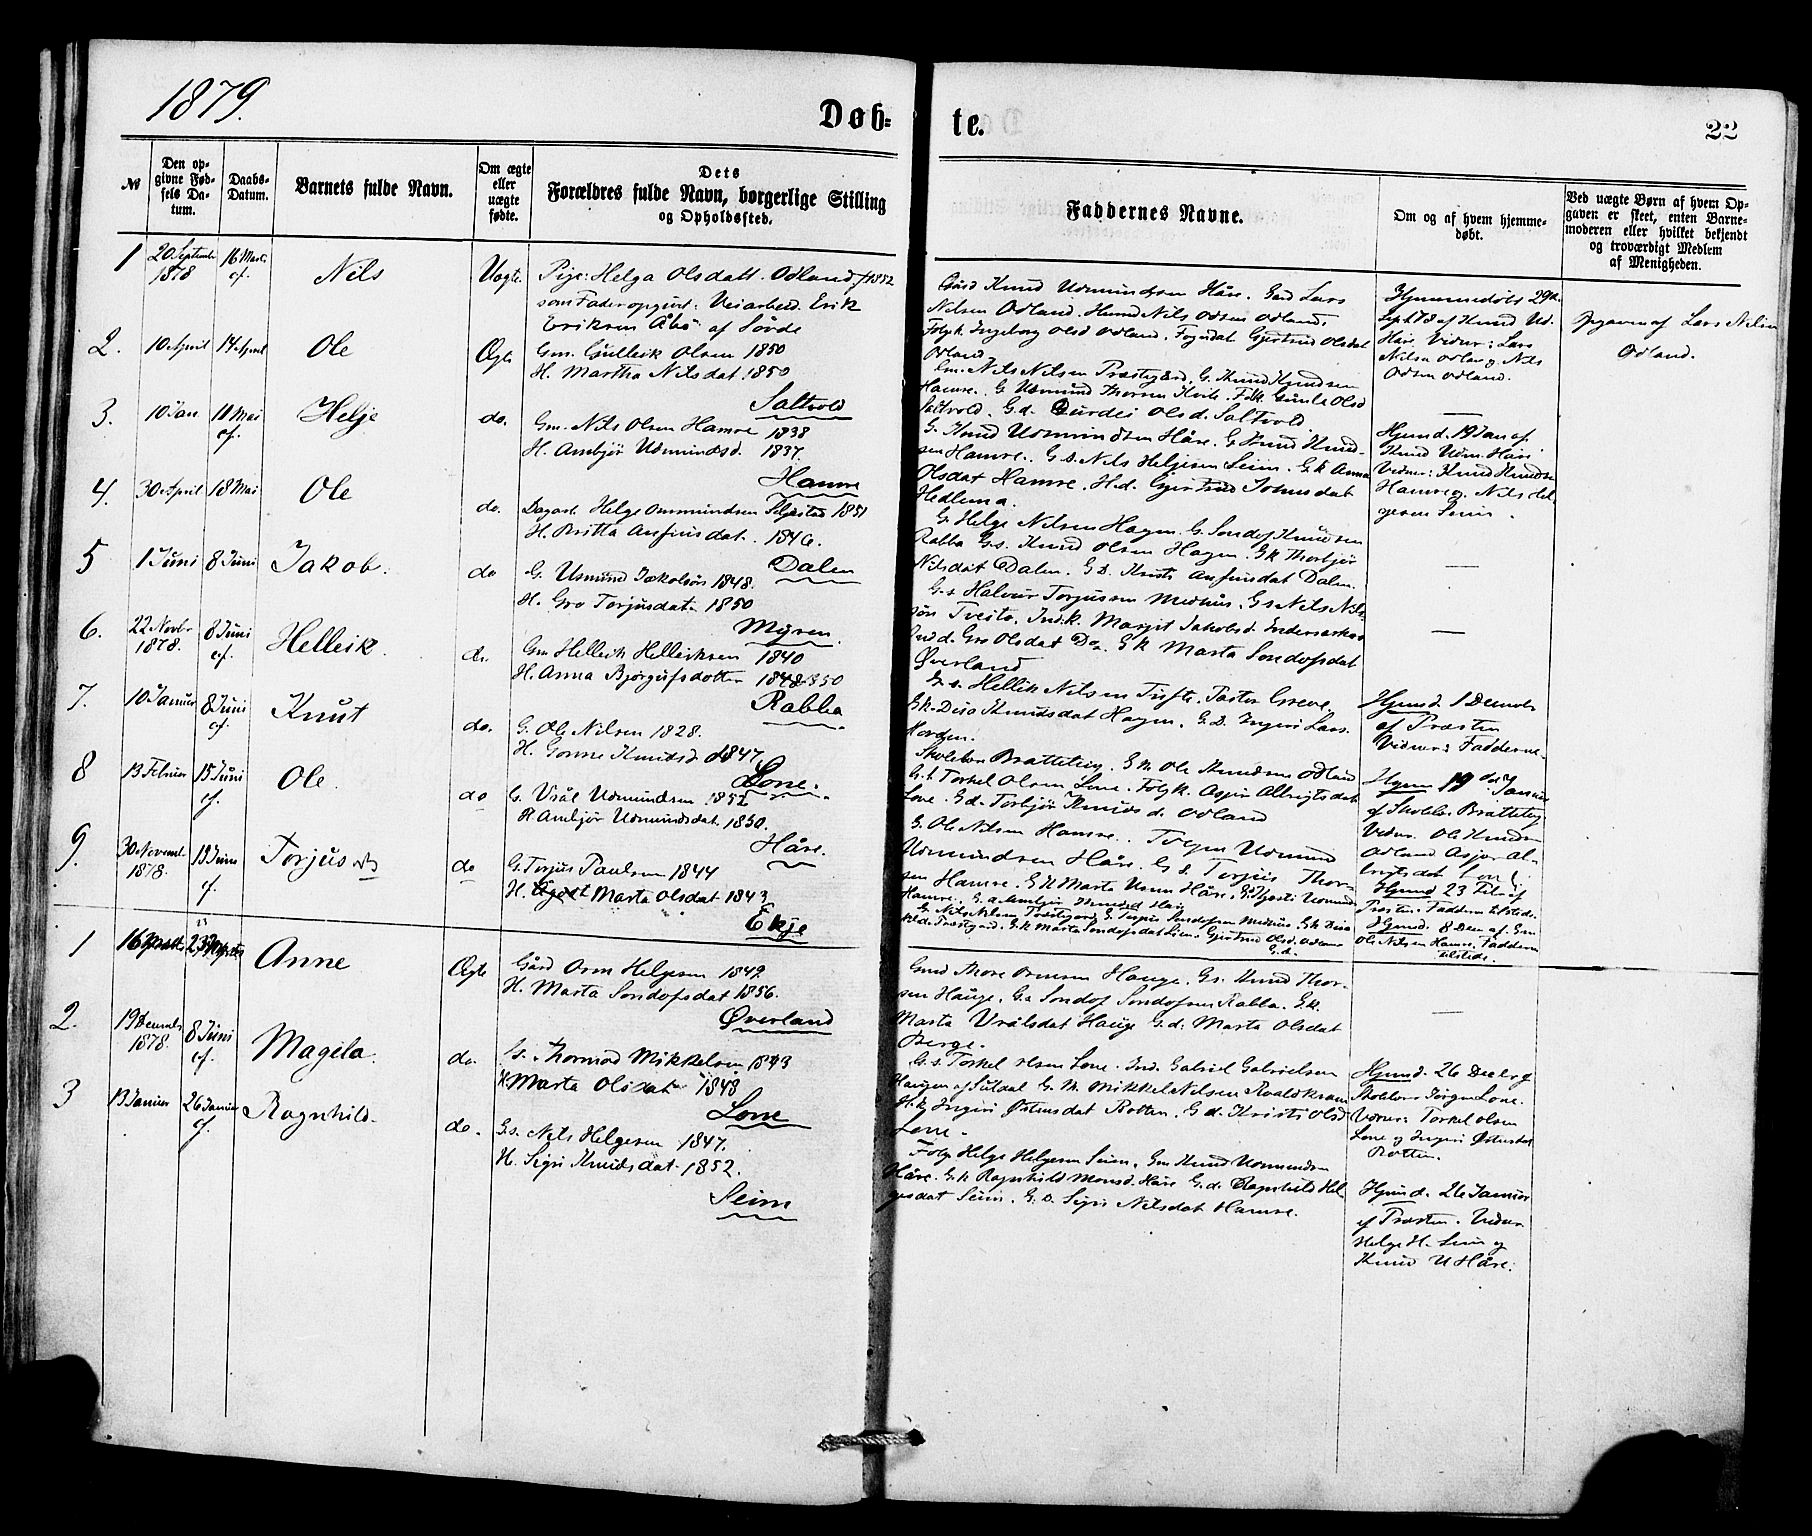 1879.
Døb- te.
22
№
Den op-
givne Fød-
sels Da-
tum.
Daabs-
Datum.
Barnets fulde Navn.
Om ægte
eller
uægte
fødte.
Dets
Forældres fulde Navn, borgerlige Stilling
og Opholdssted.
Faddernes Navne.
Om og af hvem hjemme-
døbt.
Ved uægte Børn af hvem Op-
gaven er skeet, enten Barne-
moderen eller hvilket bekjendt
og troværdigt Medlem
af Menigheden.
1 20 Septembr 16 Marts
1878 cf.
Nils
Uægte.
Pige: Helga Olsdatt. Odland f 1852
som Fader opgivet: Veiarbeid. Erik
Eriksen Åbø af Søvde
Gård Knud Usmundsen Håre. Gmd Lars
Nilsen Odland. Nils Odsen Odland.
Folgk. Ingeborg Olsd Odland. Gjertrud Olsdat
Odland
Hjemmedøbt 29de
Sept 78 af Knud Ud.
Håre. Vidner: Lars
Nilsen Odland og Nils
Odsen Odland.
Opgaven af Lars Nilsen
Odland.
2. 10 April 14 April
Ole
Ægte
Gm. Gulleik Olsen 1850
H. Martha Nilsdat. 1850
Saltvold
Gm. Nils Nilsen Præstegård. G. Knud Knudsen
Hamre. G Usmund Thorsen Folk. Gunla Olsd
Saltvold. G.d. Durdei Olsd. Saltvold.
—
3. 10 Jan 11 Mai
cf.
Helje
do.
Gm. Nils Olsen Hamre 1838
H. Anbjør Usmundsd. 1837.
Hamre
G. Knud Usmundsen Håre. G Knud Knud-
sen Hamre. G.s. Nils Heljesen Seim. G.k Anna
Olsdat Hamre. H.d. Gjertrud Johnsdat
Hedlema.
Hjemd. 19 Jan af
Knud Usm. Håre
Vidner: Knud Knudsen
Hamre og Nils Hel-
gesen Seim.
4. 30 April 18 Mai
Ole
do.
Dagarb. Helge Aasmundsen 1851
H. Britta Anfinsdat. 1846.
Dalen
G. Helge Nilsen Hagen. G. Sondof Knudsen
Rabba G.s. Knud Olsen Hagen. G.k Thorbjør
Nilsdat Dalen. G.D. Kristi Anfinsdat Dalen.
—
5 1 Juni 8 Juni
Jakob.
do
G. Usmund Jakobsøn 1848.
H. Gro Torjusdat. 1850
Myren
G.s Halvur Torjussen Medhus. G.s Nils Nils-
søn Tveito. Ind.k. Margit Jakobsd.
Ind d. Gro Olsdat Do. G.k Marta Sondofsdat
Øverland
—
6. 22 Novbr 8 Juni
1878. cf.
Helleik.
do.
Gm Helleik Helleiksen 1840
H. Anna Bjørgufsdotter 1850
Rabba
G.s. Hellik Nilsen Tufte. Pastor Greve.
G.k. Disa Knudsdat Hagen. G.D. Ingeri Lars.
Horden.
Hjemd. 1 Decmbr
af Præsten
Vidner: Fadderne
7. 10 Januar 8 Juni
cf
Knut
do.
G. Ole Nilsen 1828.
H. Gonne Knudsd. 1847
Lone.
Skoleher Bratteteig. G.m Ole Knudsen Odland
G.s. Torkel Olsen Lone. Folgk. Aspor Albrigtsdat
Lone. G.d. Torbjør Knuds d. Odland
Hjem. 19 de Januar
af Skoleh. Bratteteig
Vidner. Ole Knudsen
Odland Aspor Al-
brigtsdat Lone
8 13 Februar 15 Juni
cf.
Ole.
do
G. Vrål Usmundsen 1852
H. Anbjør Usmundsdat. 1850.
Håre.
G. Ole Nilsen Hamre. Usmund
Usmundsen Håre. G.s. Torjus Thor-
sen Hamre. G.k Marta Usmn Håre. G.d. Usmunds
Hamre.
Hjemd 23 Feb af
Præsten. Faddern tilstede.
9. 30 Novemb. 15 Juni
1878. cf.
Torjus
do
G. Torjus Paulsen 1844
H. Marta Olsdat 1843
Ekje
G Nils Nilsen Præstegard. G. Torjus Sondofsen Medhus. G.k Disa
Præstegard. G.k Marta Sondofsdat Seim. Gjertrud Olsd. Odland
G.d.
Hjemd. 8 Dec af Gm
Ole Nilsen Hamre. Faddern
tilstede.
1 16 Marts 23 Marts
Anne
Ægte
Gård Orm Helgesen 1849
H. Marta Sondofsdat 1856.
Øverland
Gmd Thore Ormsen Hauge. G.s. Knud Thor-
sen Hauge. G.s Sondof Sondofsen Rabba. G.k.
Marta Vrålsdat Hauge G.d: Marta Olsdat
Berge.
—
2. 19 Decmbr 8 Juni
1878. cf.
Magela.
do.
G. Thormod Mikkelsen 1843
H Marta Olsdat 1848
Lone
G.s. Torkel Olsen Lone. Ind. Gabriel Gabrielsen
Haugen af Suldal G.M. Mikkel Nilsen Roaldkvam
H.k Ingeri Østensdat Botten. G.d. Kristi Olsd
Lone.
Hjemd. 26 Decbr af
Skoleher Jørgen Lone.
Vidner: Torkel Olsen
Lone og Ingeri Østensdat
Botten.
3 13 Januar 26 Januar
cf.
Ragnhild.
do.
G.s. Nils Helgesen 1847.
H. Sigri Knudsdat 1852.
Seim
Folg Helge Helgesen Seim. Gm Knud Usmundsen
Håre. G.k Ragnhild Monsd. Håre G.d. Ragnhild Hel-
gesdat Seim. G.D. Sigri Nilsdat Hamre.
Hjemd. 26 Januar
af Præsten. Vidner
Helge H. Seim og
Knud U Håre.